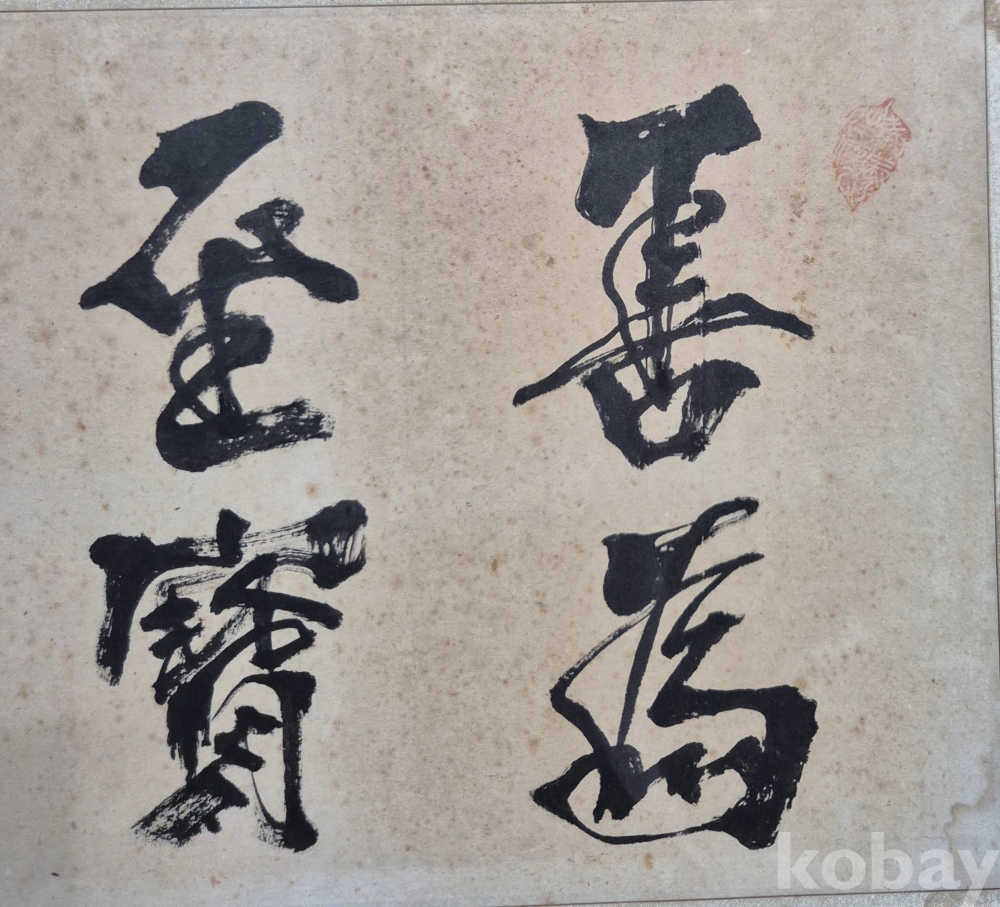 善為
至寶
kobay